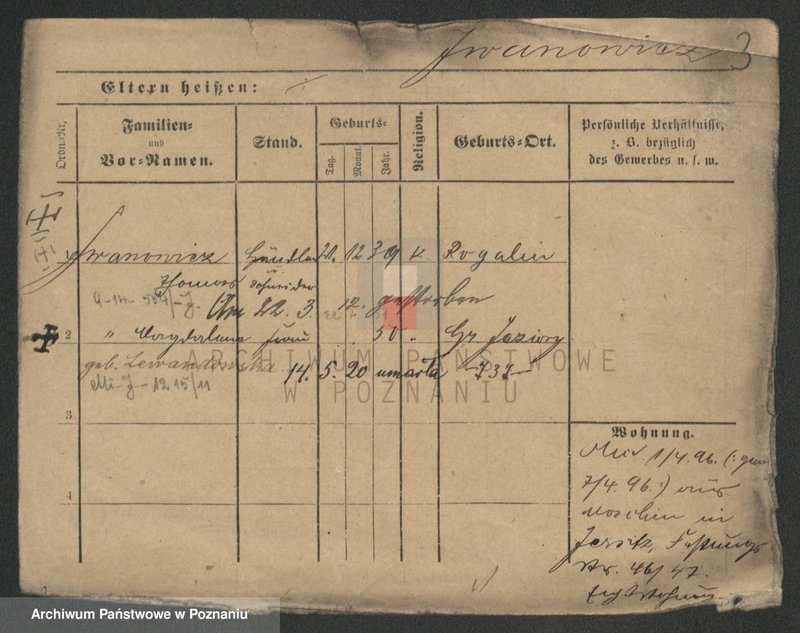 Iwanowicz 3
Eltern heißen:
Ordn.-Nr.
Familien- und Vor-Namen.
Stand.
Geburts-
Tag.
Monat.
Jahr.
Religion.
Geburts-Ort.
Persönliche Verhältnisse,
z. B. bezüglich
des Gewerbes u. s. w.
1 Iwanowicz Händler 12 39 K Rogalin
Thomas Schneider
22. 3. 12. gestorben
2 " Magdalena Frau 50 " Gr. Jeziory
geb. Lewandowska 14. 5. 20 umarła 737
12 15/11
3
4
Wohnung.
1/4. 96. (:gem
7/4. 96.:) aus
Moschin in
Jersitz, Festungs
Str. 46/47
ARCHIWUM PAŃSTWOWE
W POZNANIU
Archiwum Państwowe w Poznaniu